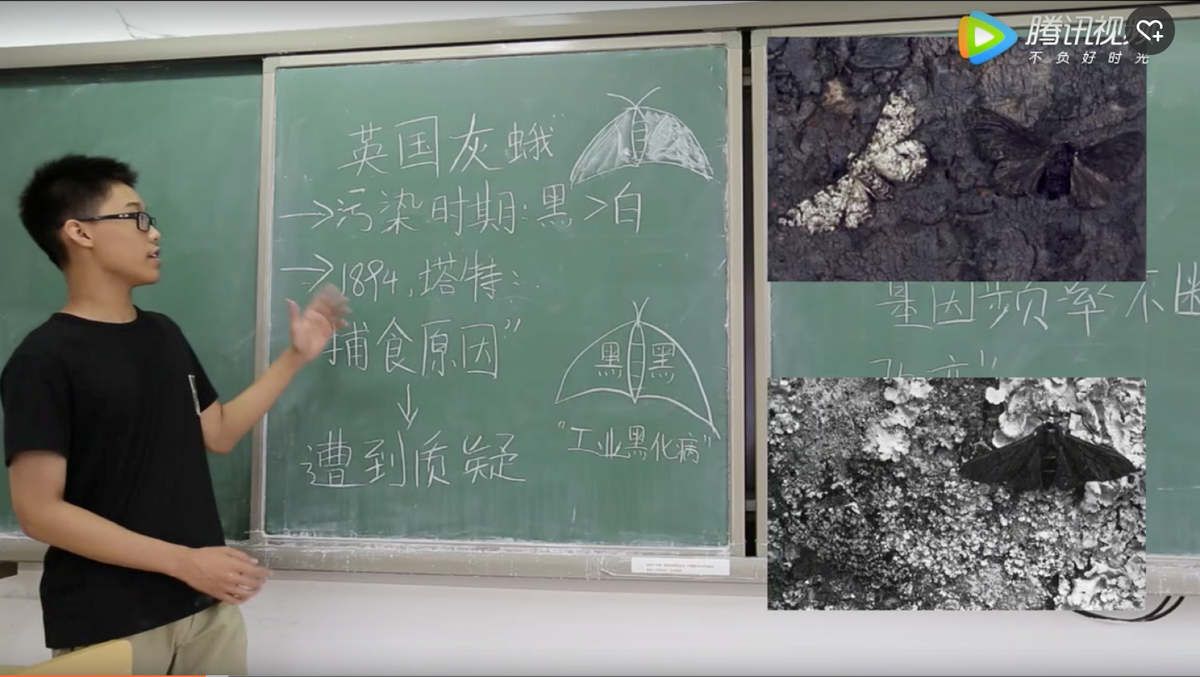 腾讯视
不负好时光
英国灰蛾"
→污染时期:黑>白
→1894,塔特:
捕食原因"
↓
遭到质疑
黑 黑
"工业黑化病"
基因频率不断